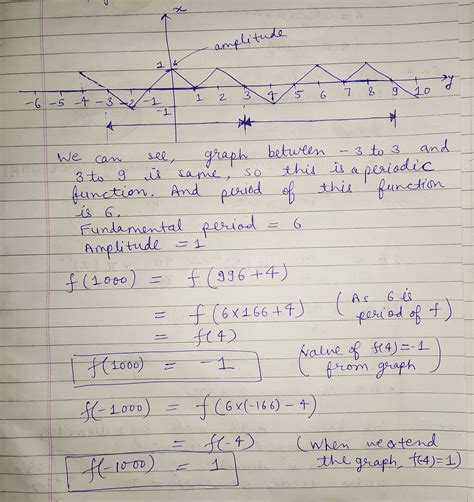 x
amplitude
1
y
-6 -5 -4 -3 -2 -1 1 2 3 4 5 6 7 8 9 10
-1
We can see, graph between -3 to 3 and
3 to 9 is same, so this is a periodic
function. And period of this function
is 6.
Fundamental period = 6
Amplitude = 1
f(1000) = f(996+4)
= f(6×166+4) (As 6 is period of f)
= f(4)
f(1000) = -1 (value of f(4)=-1 from graph)
f(-1000) = f(6×(-166)-4)
= f(-4) (when we extend
f(-1000) = 1 the graph, f(4)=1)